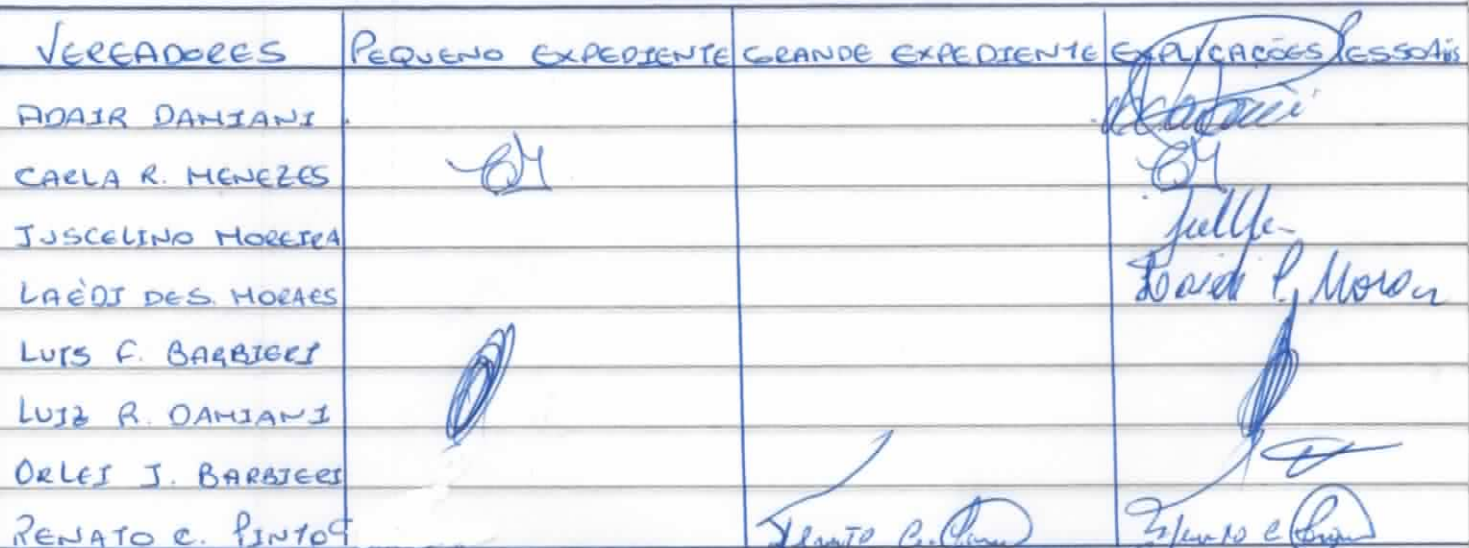 VEREADORES PEQUENO EXPEDIENTE GRANDE EXPEDIENTE EXPLICAÇÕES PESSOAIS
ADAIR DAMIANI
CARLA R. MENEZES CM CM
JUSCELINO MOREIRA
LAÈDI DES. MORAES
LUIS F. BARBIERI
LUIZ R. DAMIANI
ORLEI J. BARBIERI
RENATO C. PINTO Renato C. Renato C